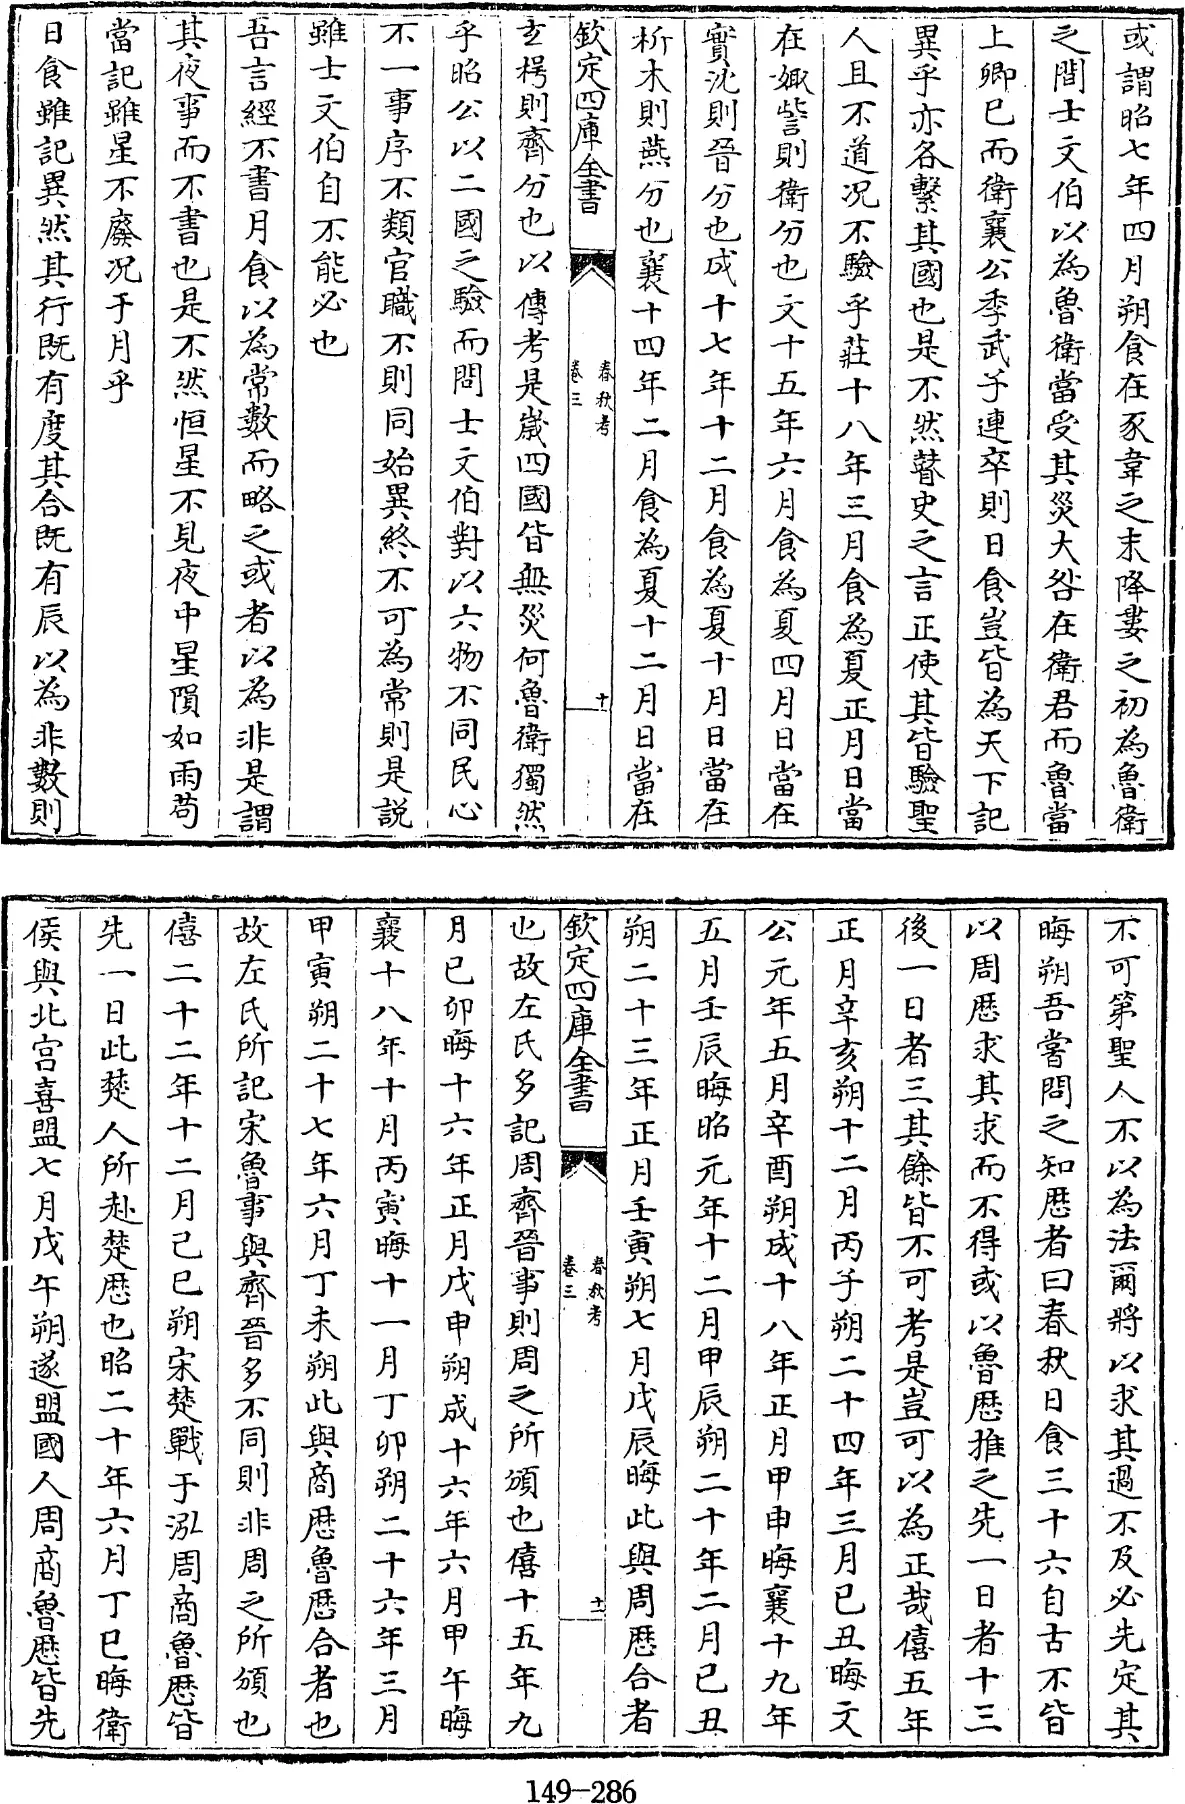 或謂昭七年四月朔食在豕韋之末降婁之初為魯衛
之間士文伯以為魯衛當受其災大咎在衛君而魯當
上卿已而衛襄公季武子連卒則日食豈皆為天下記
異乎亦各繫其國也是不然瞽史之言正使其皆驗聖
人且不道況不驗乎莊十八年三月食為夏正月日當
在娵訾則衛分也文十五年六月食為夏四月日當在
實沈則晉分也成十七年十二月食為夏十月日當在
析木則燕分也襄十四年二月食為夏十二月日當在
欽定四庫全書
春秋考
卷三
十
玄枵則齊分也以傳考是嵗四國皆無災何魯衛獨然
乎昭公以二國之驗而問士文伯對以六物不同民心
不一事序不類官職不則同始異終不可為常則是説
雖士文伯自不能必也
吾言經不書月食以為常數而略之或者以為非是謂
其夜事而不書也是不然恒星不見夜中星隕如雨苟
當記雖星不廢況于月乎
日食雖記異然其行既有度其合既有辰以為非數則
不可第聖人不以為法爾將以求其過不及必先定其
晦朔吾嘗問之知厯者曰春秋日食三十六自古不皆
以周厯求其求而不得或以魯厯推之先一日者十三
後一日者三其餘皆不可考是豈可以為正哉僖五年
正月辛亥朔十二月丙子朔二十四年三月已丑晦文
公元年五月辛酉朔成十八年正月甲申晦襄十九年
五月壬辰晦昭元年十二月甲辰朔二十年二月已丑
朔二十三年正月壬寅朔七月戊辰晦此與周厯合者
欽定四庫全書
春秋考
卷三
十一
也故左氏多記周齊晉事則周之所頒也僖十五年九
月已卯晦十六年正月戊申朔成十六年六月甲午晦
襄十八年十月丙寅晦十一月丁卯朔二十六年三月
甲寅朔二十七年六月丁未朔此與商厯魯厯合者也
故左氏所記宋魯事與齊晉多不同則非周之所頒也
僖二十二年十二月己巳朔宋楚戰于泓周商魯厯皆
先一日此楚人所赴楚厯也昭二十年六月丁巳晦衛
侯與北宮喜盟七月戊午朔遂盟國人周商魯厯皆先
149-286